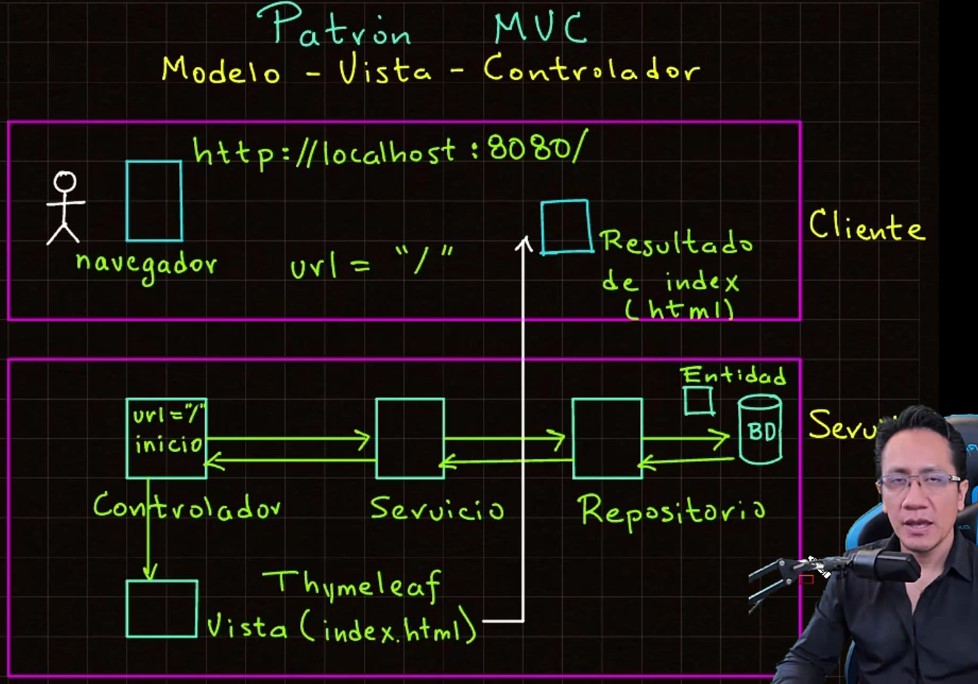 Patrón MVC
Modelo - Vista - Controlador
http://localhost:8080/
Cliente
navegador
url = "/"
Resultado
de index
(html)
Entidad
url="/"
inicio
BD
Controlador
Servicio
Repositorio
Thymeleaf
Vista (index.html)